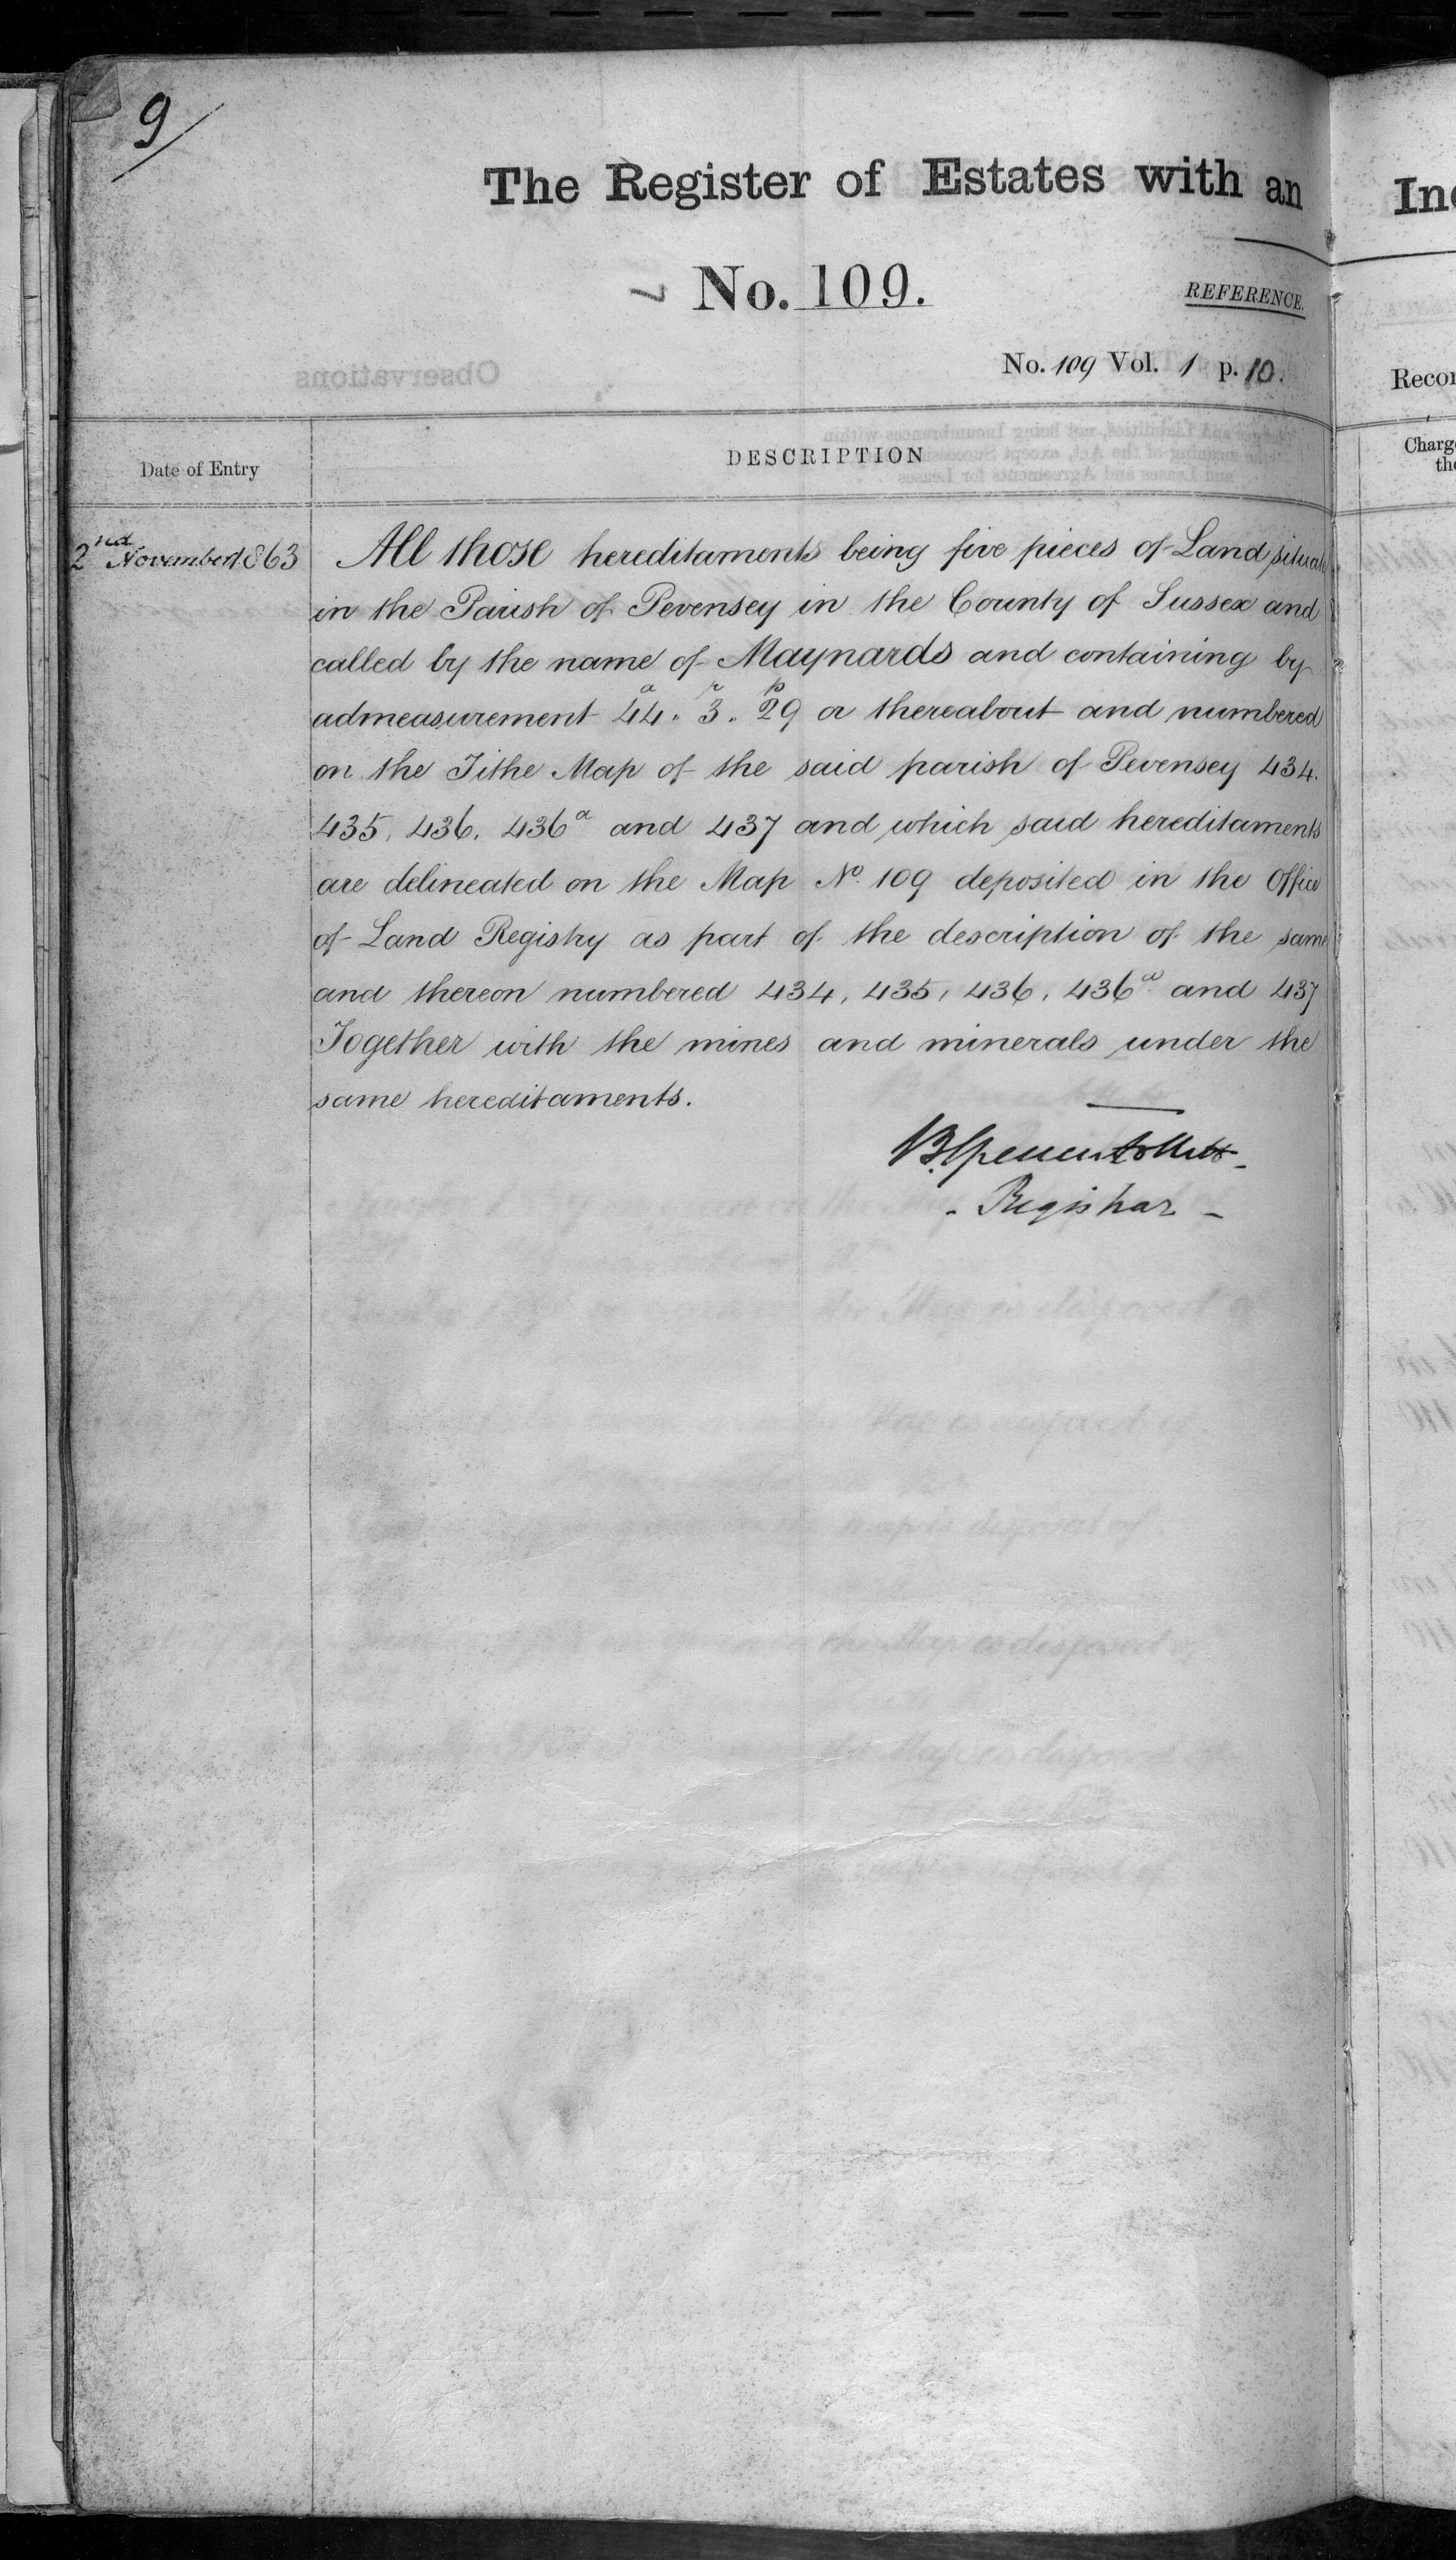 9
The Register of Estates with an
No. 109.
REFERENCE.
No. 109 Vol. 1 p. 10.
Date of Entry
DESCRIPTION
2nd November 1863
All those hereditaments being five pieces of Land situate
in the Parish of Pevensey in the County of Sussex and
called by the name of Maynards and containing by
admeasurement 44a. 3r. 29p or thereabout and numbered
on the Tithe Map of the said parish of Pevensey 434.
435, 436, 436a and 437 and which said hereditaments
are delineated on the Map No. 109 deposited in the Office
of Land Registry as part of the description of the same
and thereon numbered 434, 435, 436, 436a and 437
Together with the mines and minerals under the
same hereditaments.
Registrar
Observations